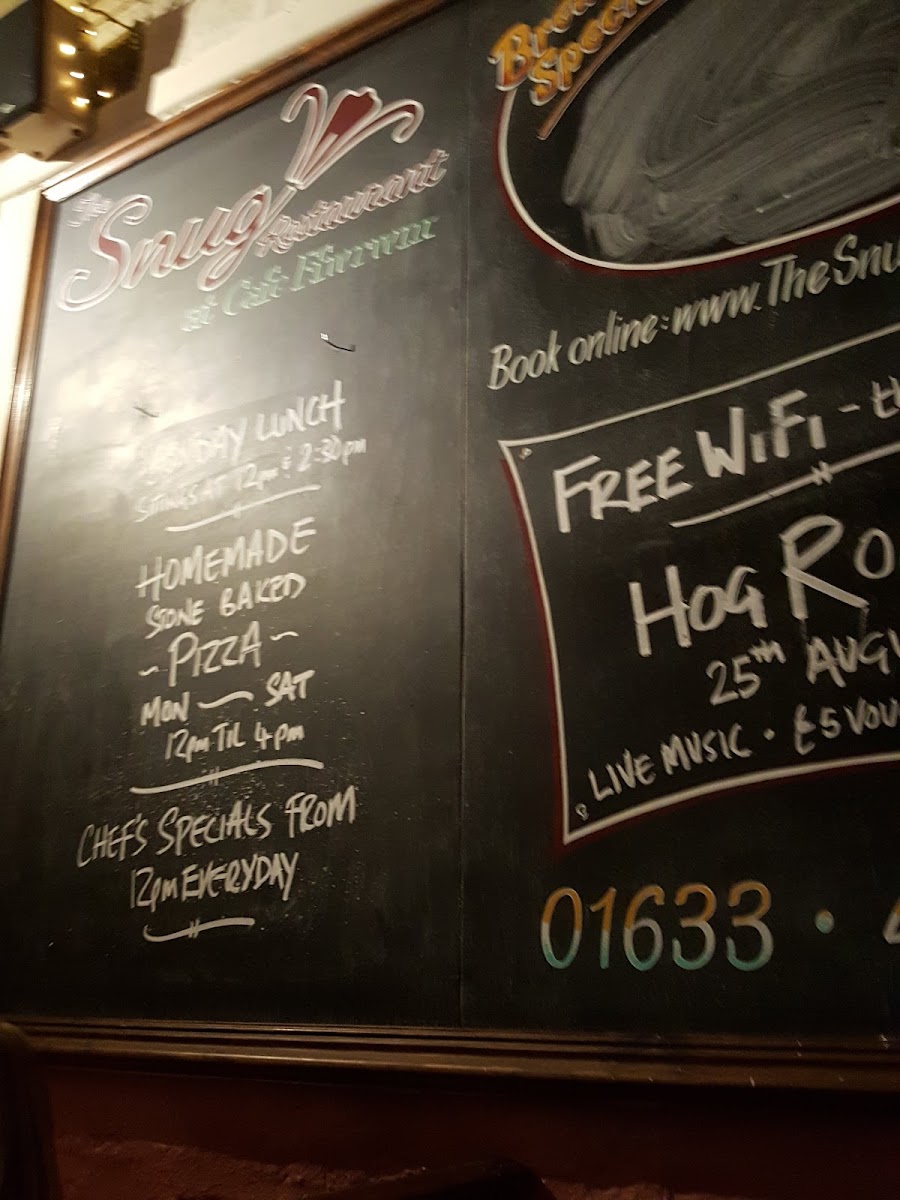 The
Snug
Restaurant
at Café
LUNCH
AT 12pm & 2:30pm
HOMEMADE
STONE BAKED
~ PIZZA ~
MON — SAT
12pm TIL 4pm
CHEF'S SPECIALS FROM
12pm EVERYDAY
Book online: www.TheSnu
FREE WiFi -
HOG RO
25TH AUGU
LIVE MUSIC • £5 VOU
01633 •